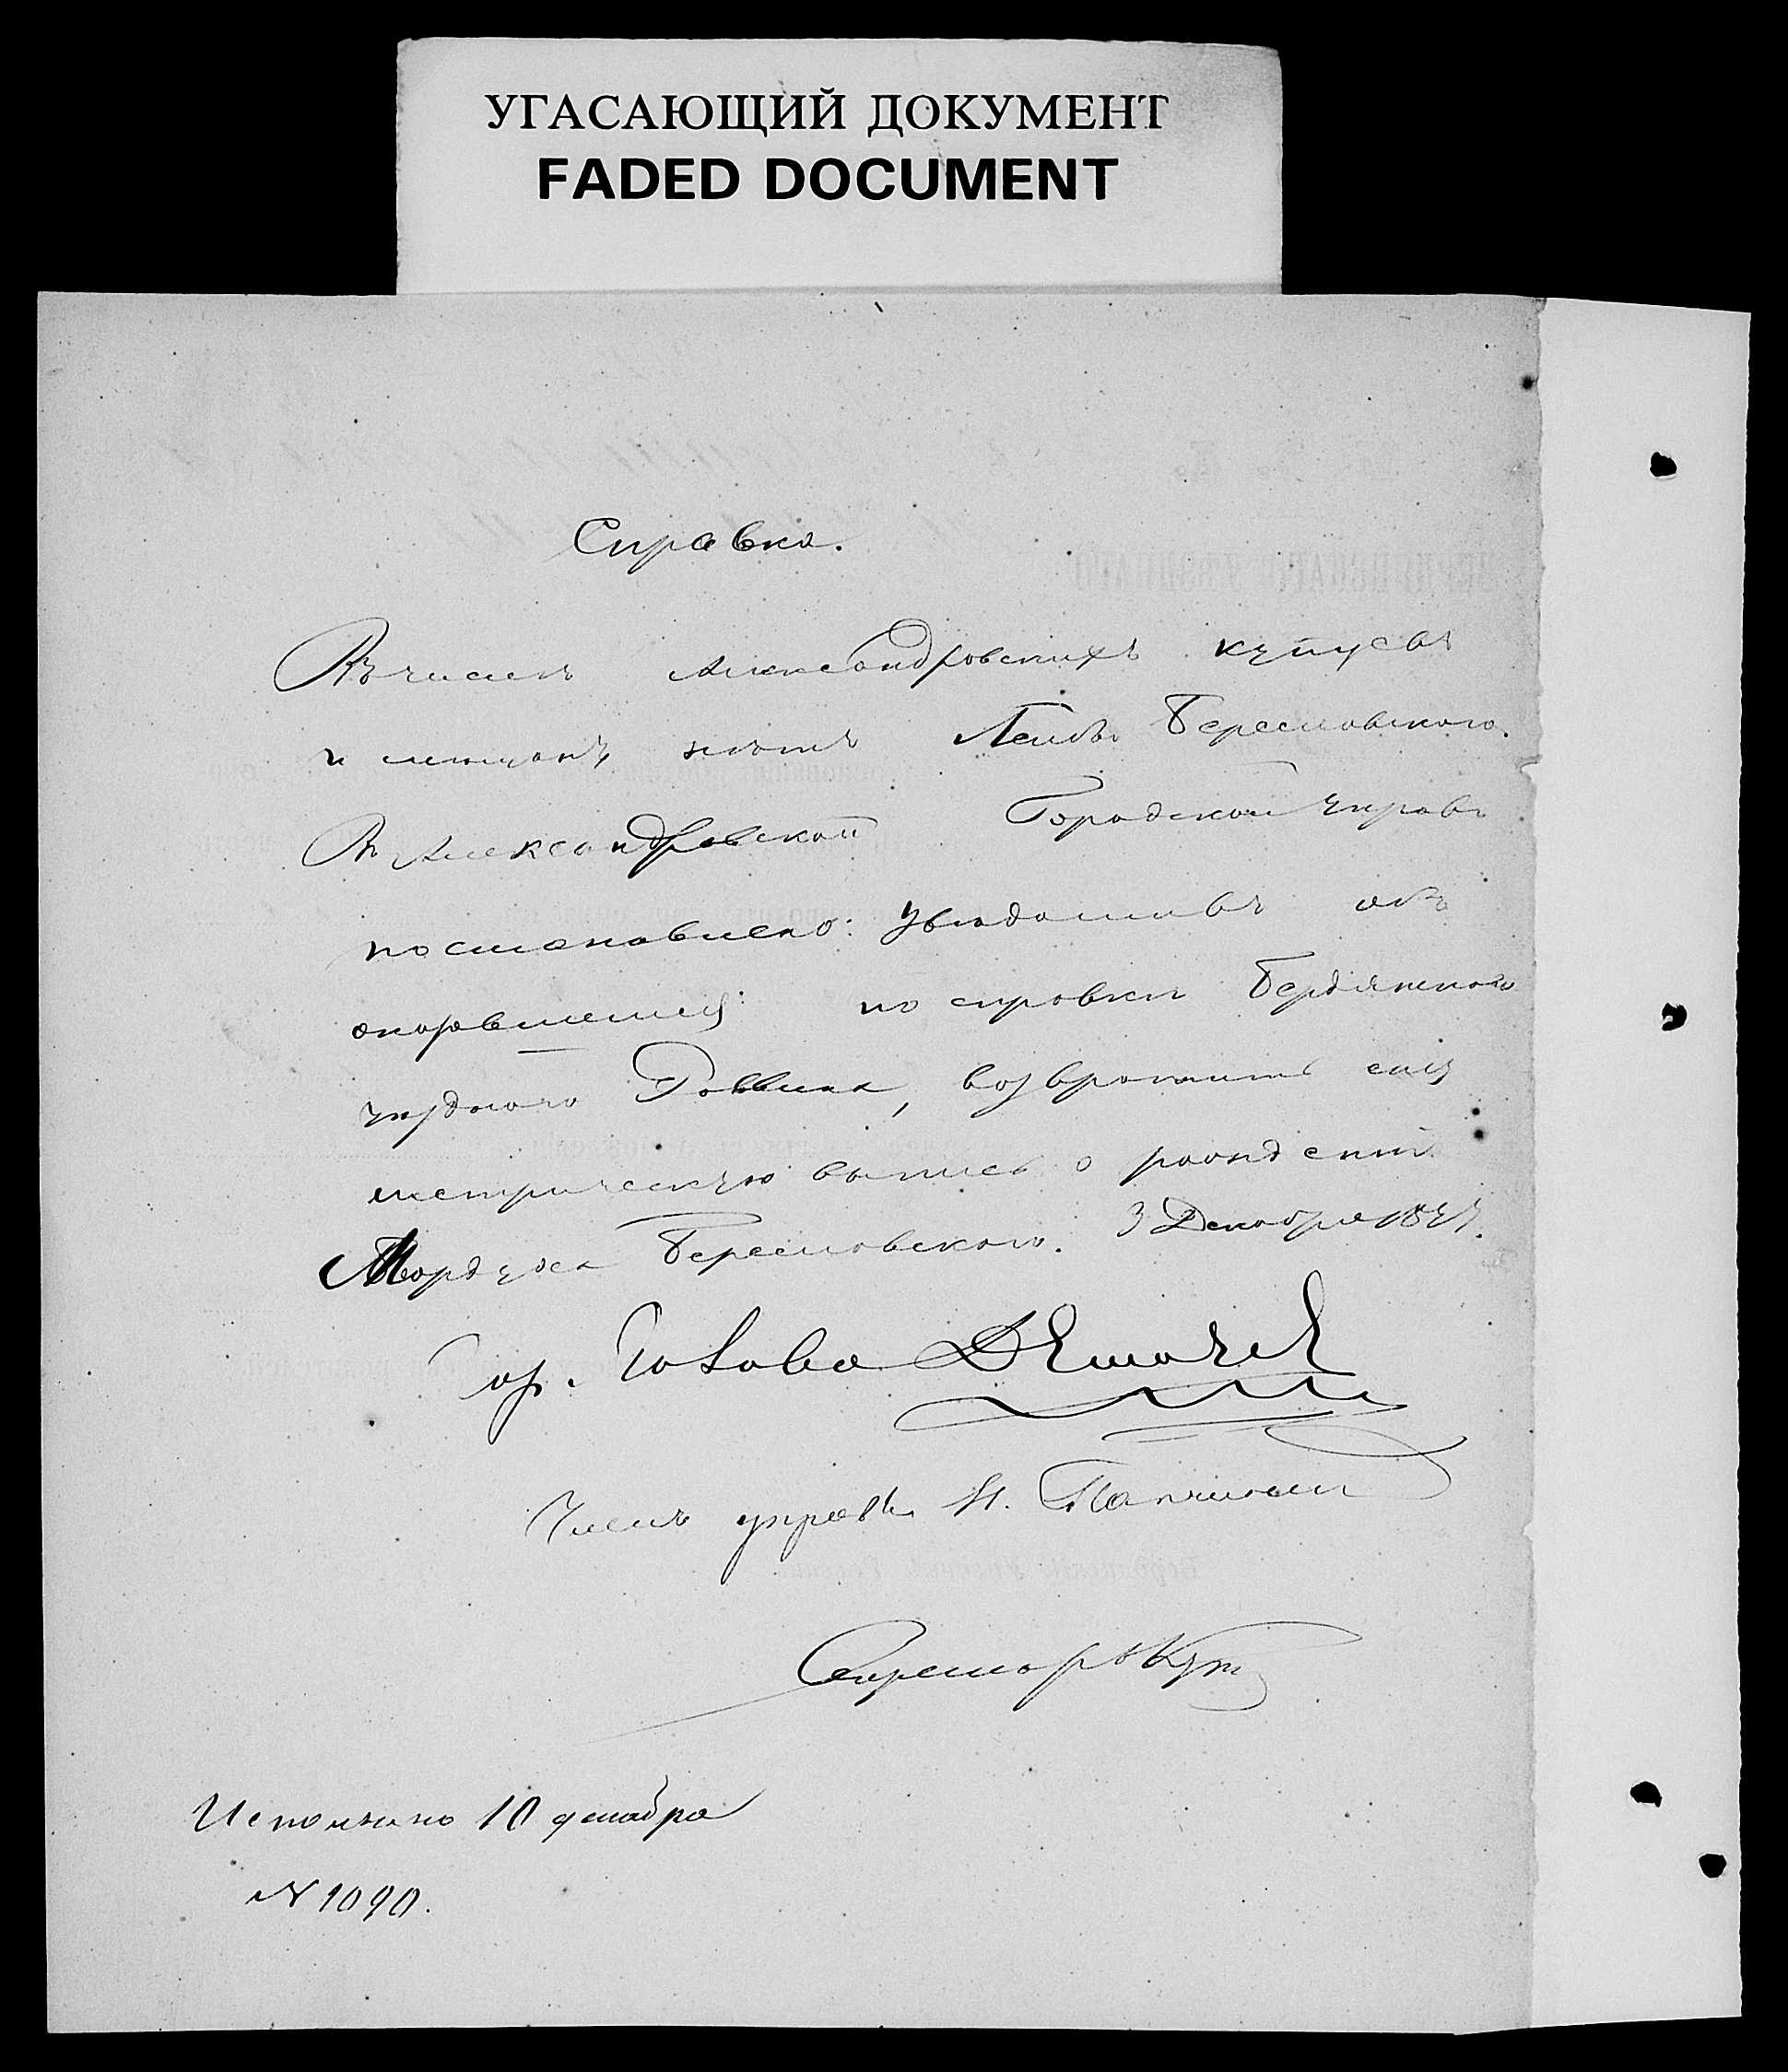 УГАСАЮЩИЙ ДОКУМЕНТ
FADED DOCUMENT
Справка.
Въ числѣ Александровскихъ купцовъ
и мещанъ нѣтъ Лейбы Береславского.
Въ Александровской Городской Управѣ
постановлено: Увѣдомивъ объ
оказавшемся по справкѣ Бердянского
уѣздного Раввина, возвратить ему
метрическую выпись о рождении
Мордуха Береславского. 3 Декабря
Гор. Голова
Членъ управы Н.
Секретарь
Исполнено 10 декабря
№ 1090.